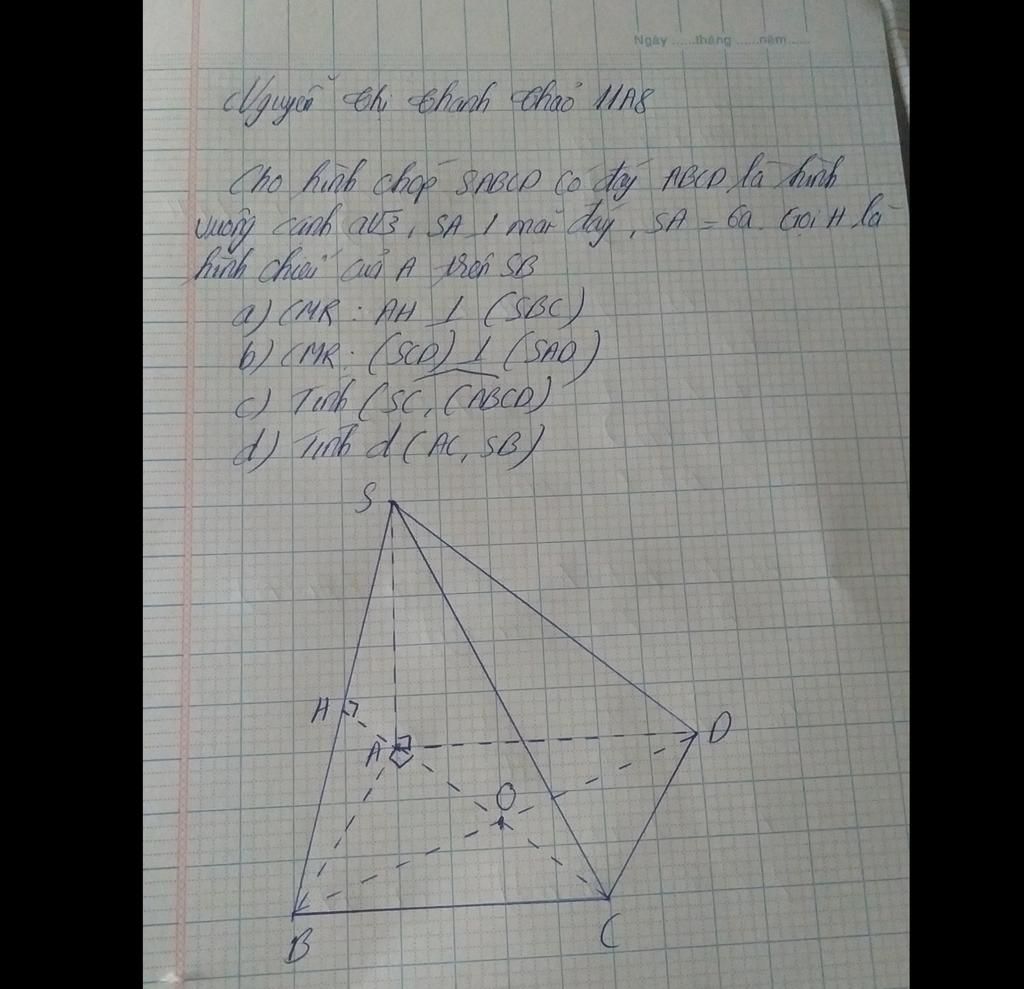 Ngày ......tháng ......năm......
Nguyễn Thị Thanh Thảo 11A8
Cho hình chóp SABCD có đáy ABCD là hình
vuông cạnh a√3, SA ⊥ mặt đáy, SA = 6a. Gọi H là
hình chiếu của A trên SB
a) CMR : AH ⊥ (SBC)
b) CMR : (SCD) ⊥ (SAD)
c) Tính (SC, (ABCD)
d) Tính d(AC, SB)
S
H
A
D
O
B
C